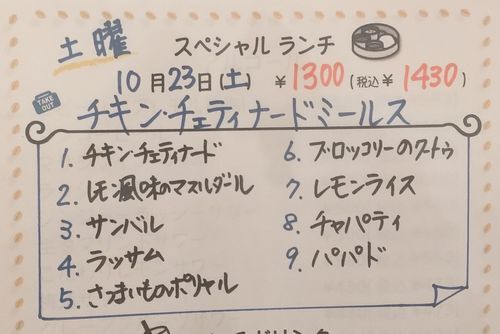 土曜 スペシャル ランチ
10月23日(土) ¥1300(税込¥1430)
TAKE OUT
チキン・チェティナードミールス
1. チキンチェティナード
2. レモン風味のマスルダール
3. サンバル
4. ラッサム
5. さつまいものポリヤル
6. ブロッコリーのクートゥ
7. レモンライス
8. チャパティ
9. パパド